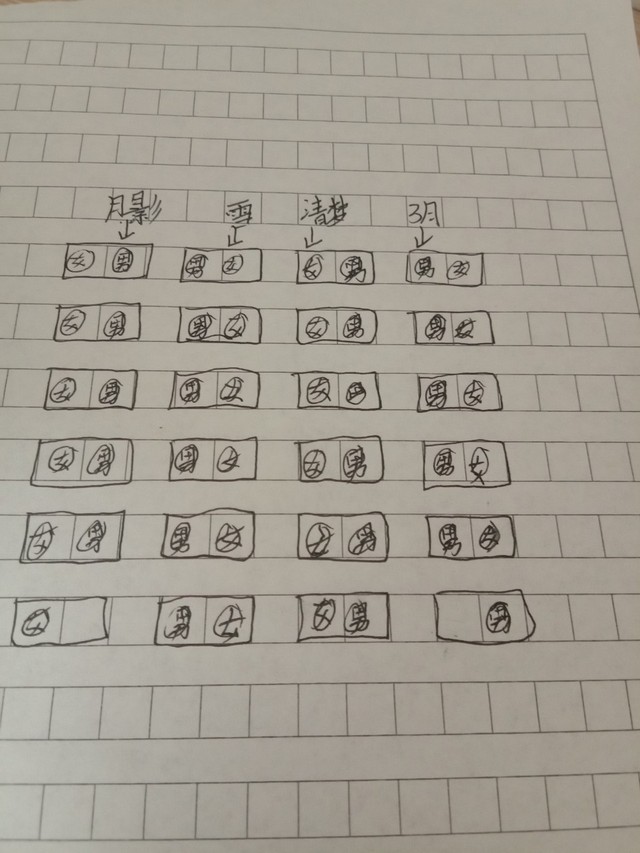 月影 雪 清梦 3月
女 男 男 女 女 男 男 女
女 男 男 女 女 男 男 女
女 男 男 女 女 男 男 女
女 男 男 女 女 男 男 女
女 男 男 女 女 男 男 女
女 男 女 女 男 男